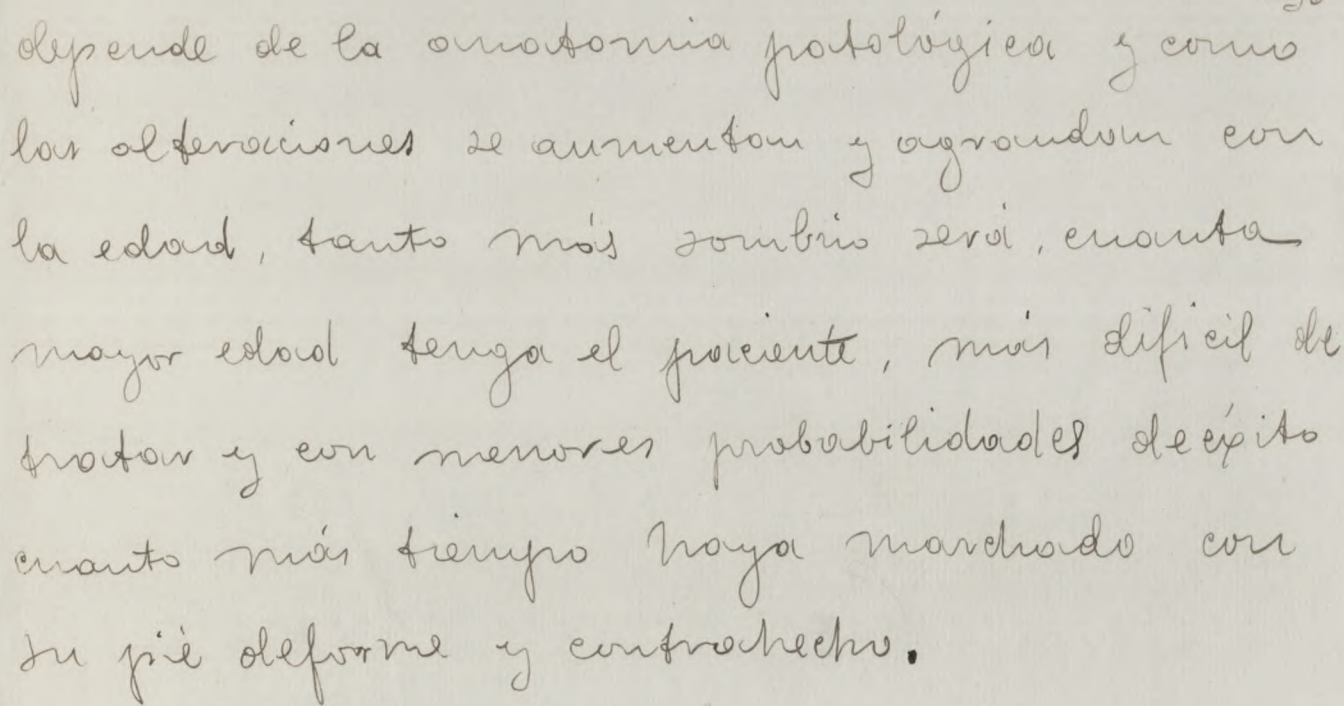 depende de la anatomia patológica y como
las alteraciones se aumentan y agrandan con
la edad, tanto más sombrio será, cuanta
mayor edad tenga el paciente, más dificil de
tratar y con menores probabilidades de éxito
cuanto más tiempo haya marchado con
su pié deforme y contrahecho.